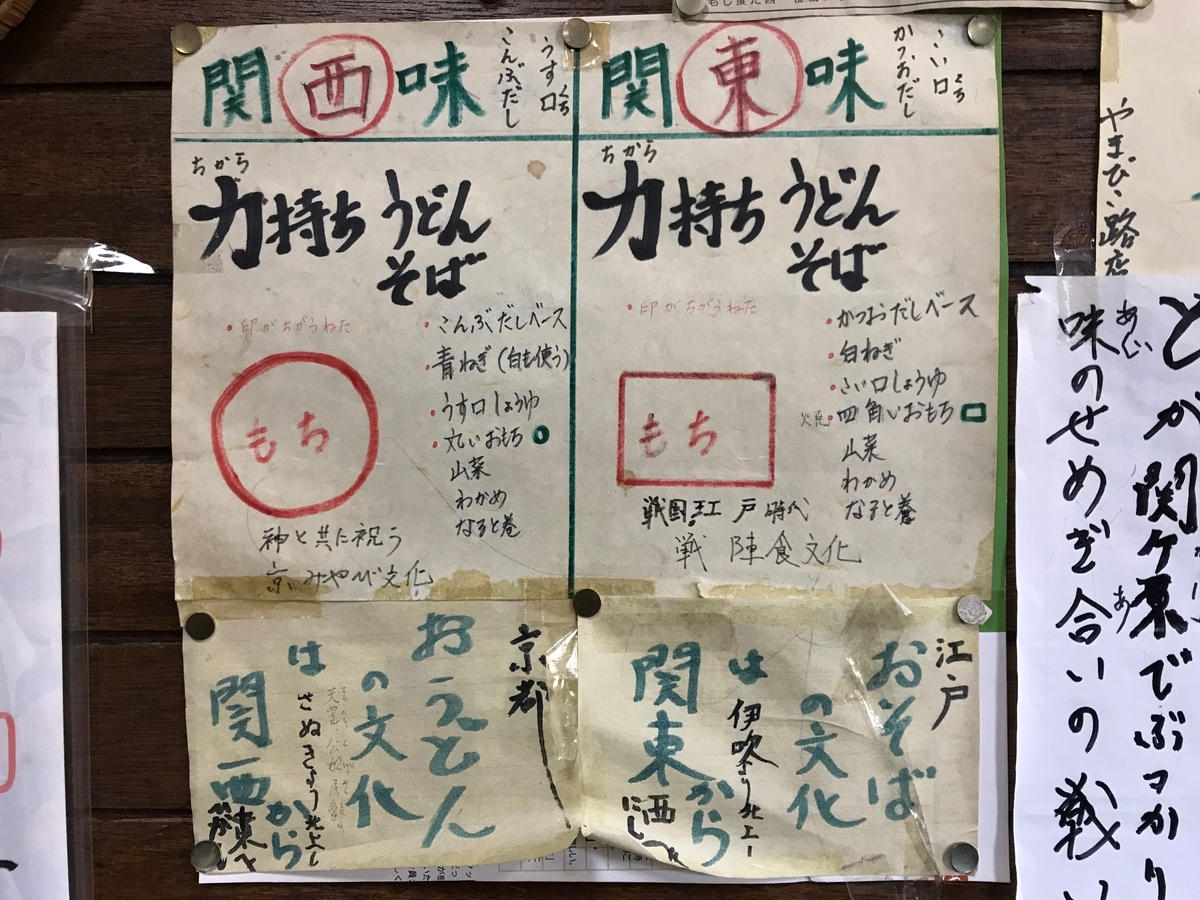 関西味
うす口
くち
こんぶだし
ちから
力持ち うどん
そば
・印がちがうねた
・こんぶだしベース
・青ねぎ(白も使う)
・うす口しょうゆ
・丸いおもち
山菜
わかめ
なると巻
もち
神と共に祝う
京みやび文化
関東味
こい口
くち
かつおだし
ちから
力持ち うどん
そば
・印がちがうねた
・かつおだしベース
・白ねぎ
・こい口しょうゆ
・四角いおもち
山菜
わかめ
なると巻
もち
戦国 江戸時代
戦陣食文化
京都
おうどん
の文化
は さぬきより北上し
関西から
東へ
江戸
おそば
の文化
は 伊吹より北上し
関東から
西へ
にし
やまびこ路店
とか関ケ原でぶつかり
味のせめぎ合いの戦い
あじ
あ